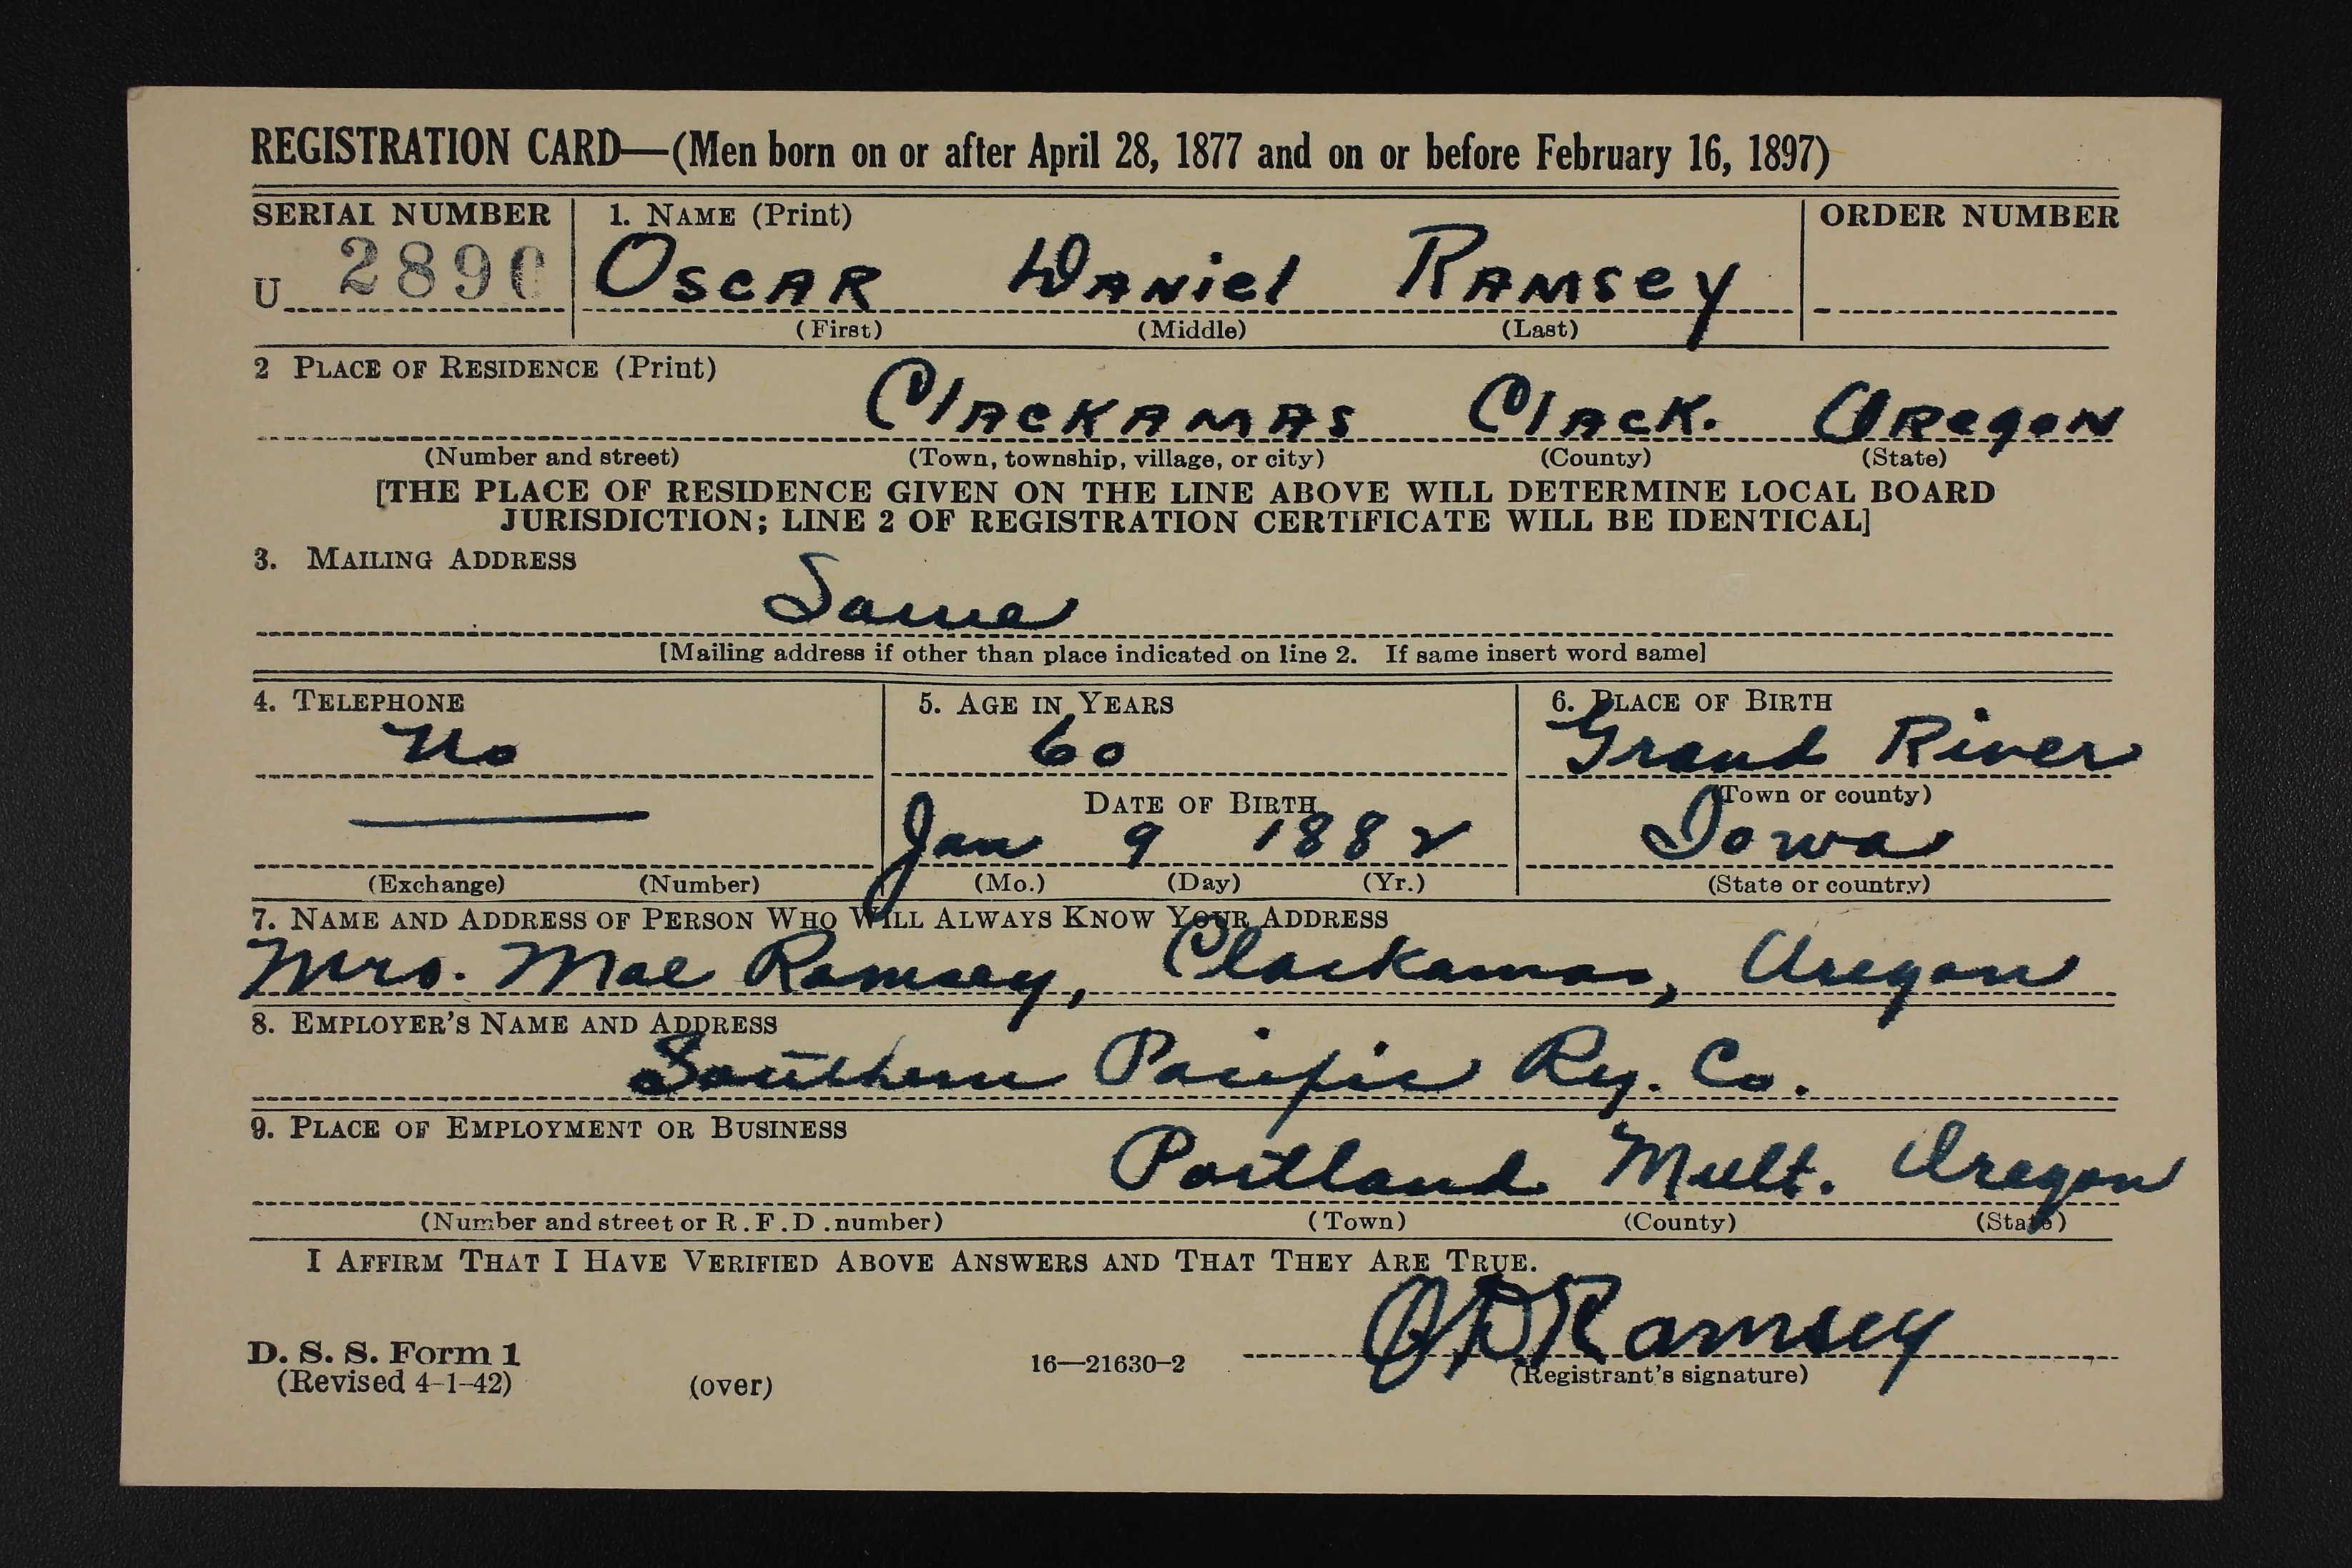 REGISTRATION CARD—(Men born on or after April 28, 1877 and on or before February 16, 1897)
SERIAL NUMBER 1. NAME (Print) ORDER NUMBER
U 2890 OSCAR DANiel RAMSey
(First) (Middle) (Last)
2 PLACE OF RESIDENCE (Print)
ClACKAMAS ClACK. ORegoN
(Number and street) (Town, township, village, or city) (County) (State)
[THE PLACE OF RESIDENCE GIVEN ON THE LINE ABOVE WILL DETERMINE LOCAL BOARD
JURISDICTION; LINE 2 OF REGISTRATION CERTIFICATE WILL BE IDENTICAL]
3. MAILING ADDRESS
Same
[Mailing address if other than place indicated on line 2. If same insert word same]
4. TELEPHONE 5. AGE IN YEARS 6. PLACE OF BIRTH
No 60 Grand River
DATE OF BIRTH (Town or county)
Jan 9 1882 Iowa
(Exchange) (Number) (Mo.) (Day) (Yr.) (State or country)
7. NAME AND ADDRESS OF PERSON WHO WILL ALWAYS KNOW YOUR ADDRESS
Mrs. Mae Ramsey, Clackamas, Oregon
8. EMPLOYER'S NAME AND ADDRESS
Southern Pacific Ry. Co.
9. PLACE OF EMPLOYMENT OR BUSINESS
Portland Mult. Oregon
(Number and street or R.F.D. number) (Town) (County) (State)
I AFFIRM THAT I HAVE VERIFIED ABOVE ANSWERS AND THAT THEY ARE TRUE.
O D Ramsey
D. S. S. Form 1
(Revised 4-1-42) (over) 16—21630-2 (Registrant's signature)